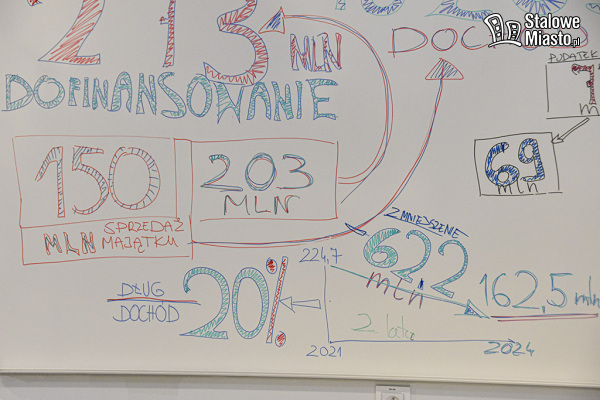 213 MLN
DOFINANSOWANIE
Stalowe
Miasto.pl
PODATEK
150
MLN SPRZEDAŻ
MAJĄTKU
203
MLN
69
mln
ZMNIEJSZENIE
622
mln
224,7
162,5 mln
DŁUG
DOCHÓD
20%
2021
2024